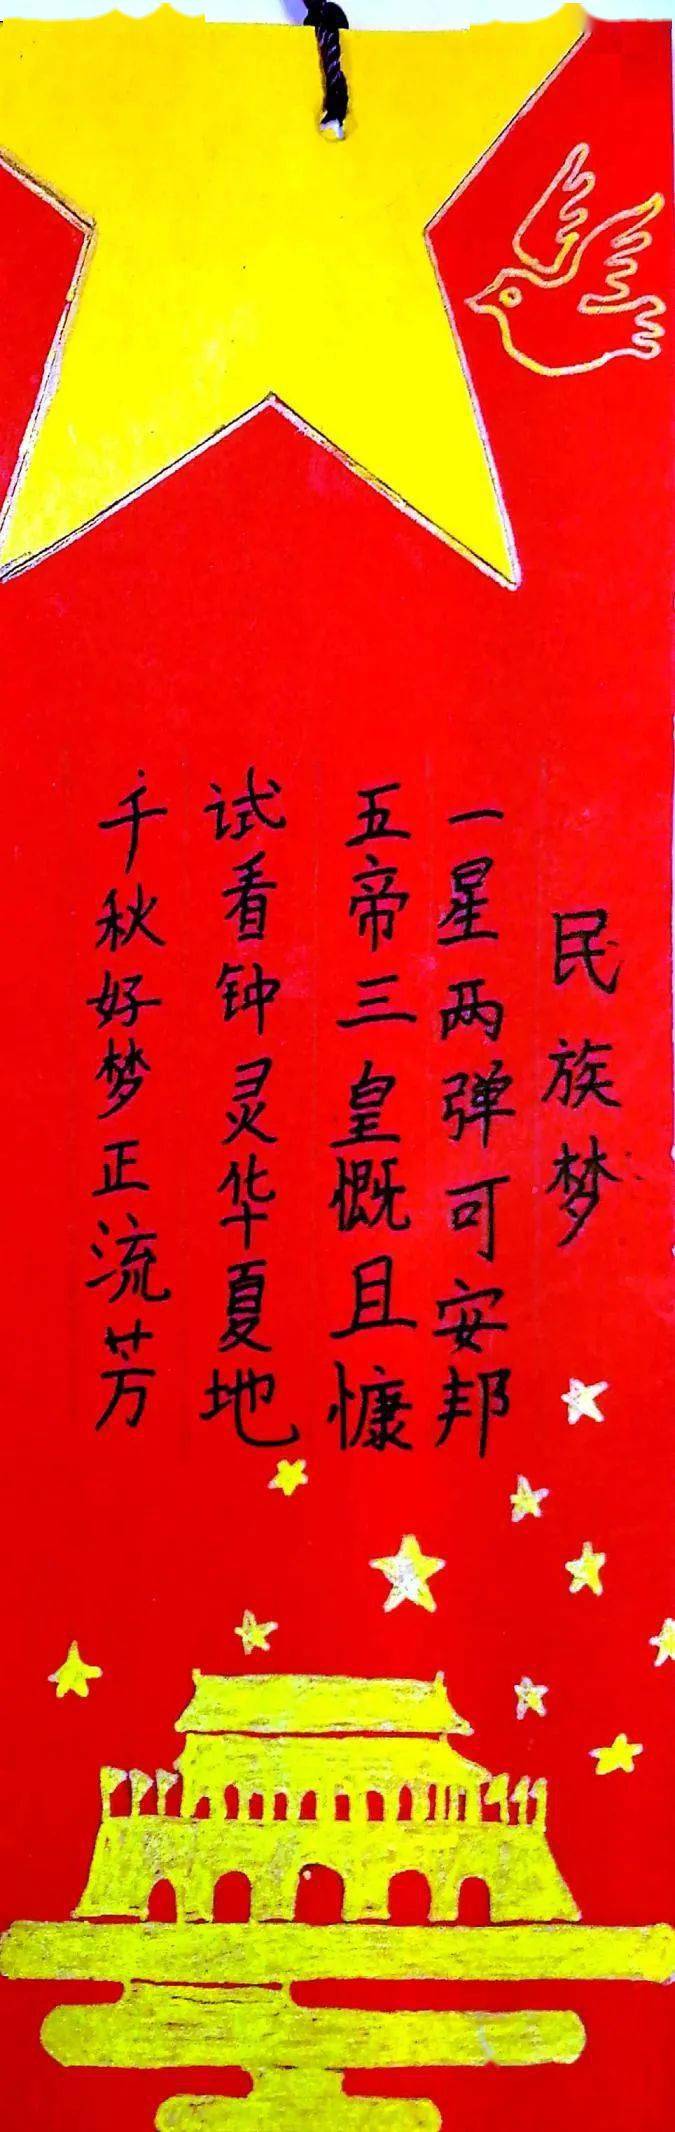 民族梦
一星两弹可安邦
五帝三皇慨且慷
试看钟灵华夏地
千秋好梦正流芳